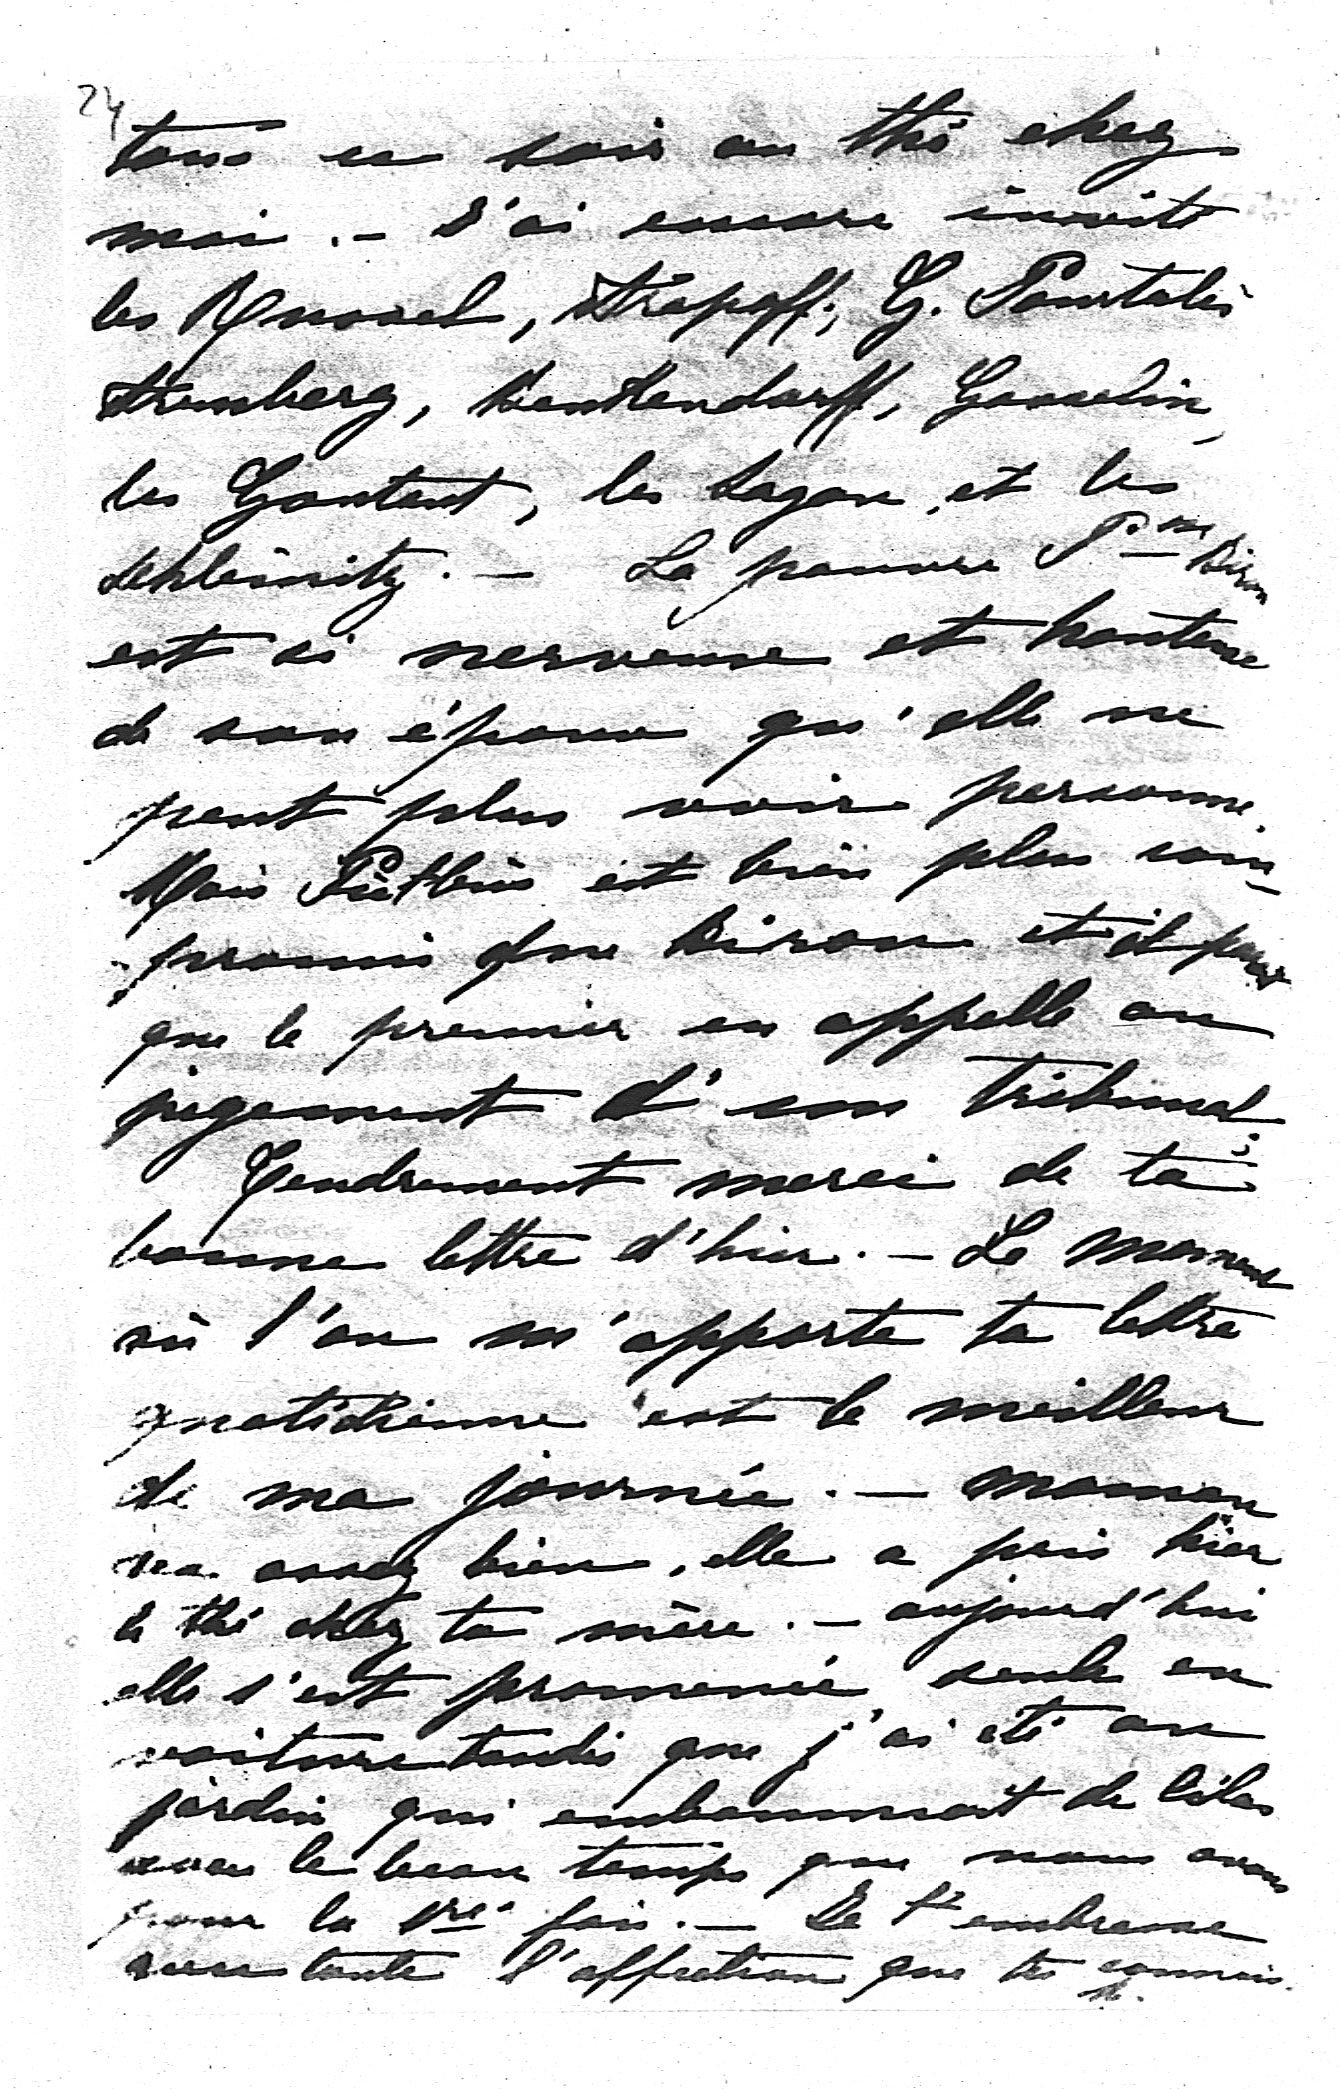 24
tous ce soir au thé chez
moi. – J'ai encore invité
les Russel, Strapoff, G. Pourtalès
Arenberg, Benkendorff, Gosselin,
les Gontaut, les Sagan, et les
Schleinitz. – La pauvre Psse Biron
est si nerveuse et honteuse
de son époux qu'elle ne
peut plus voir personne.
Mais Putbus est bien plus com-
promis que Biron et il paraît
que le premier en appelle au
jugement d'un tribunal;
Tendrement merci de ta
bonne lettre d'hier. – Le moment
où l'on m'apporte ta lettre
quotidienne est le meilleur
de ma journée. – Maman
va assez bien, elle a pris hier
le thé chez ta mère. – aujourd'hui
elle s'est promenée seule en
voiture tandis que j'ai été au
jardin qui embaumait de lilas
avec le beau temps que nous avons
pour la 1re fois. – Je t'embrasse
avec toute l'affection que tu connais.